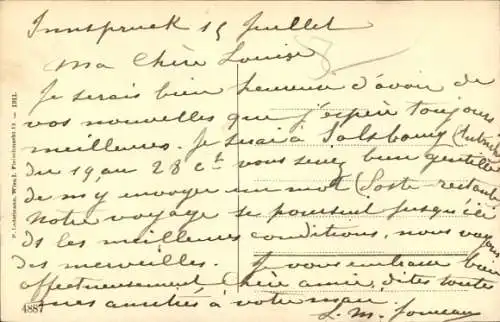 Innspruck 15 Juillet
Ma Chère Louise
Je serais bien heureuse d'avoir de
vos nouvelles que j'espère toujours
meilleures. Je serai à Salsbourg (Autriche
du 19 au 28 ct vous serez bien gentille
de m'y envoyer un mot (Poste-restante
Notre voyage se poursuit jusqu'ici
ds les meilleures conditions, nous voyons
des merveilles. Je vous embrasse bien
affectueusement Chère amie, dites toutes
mes amitiés à votre mari.
L. M.
4887
Wien I. — 1911.